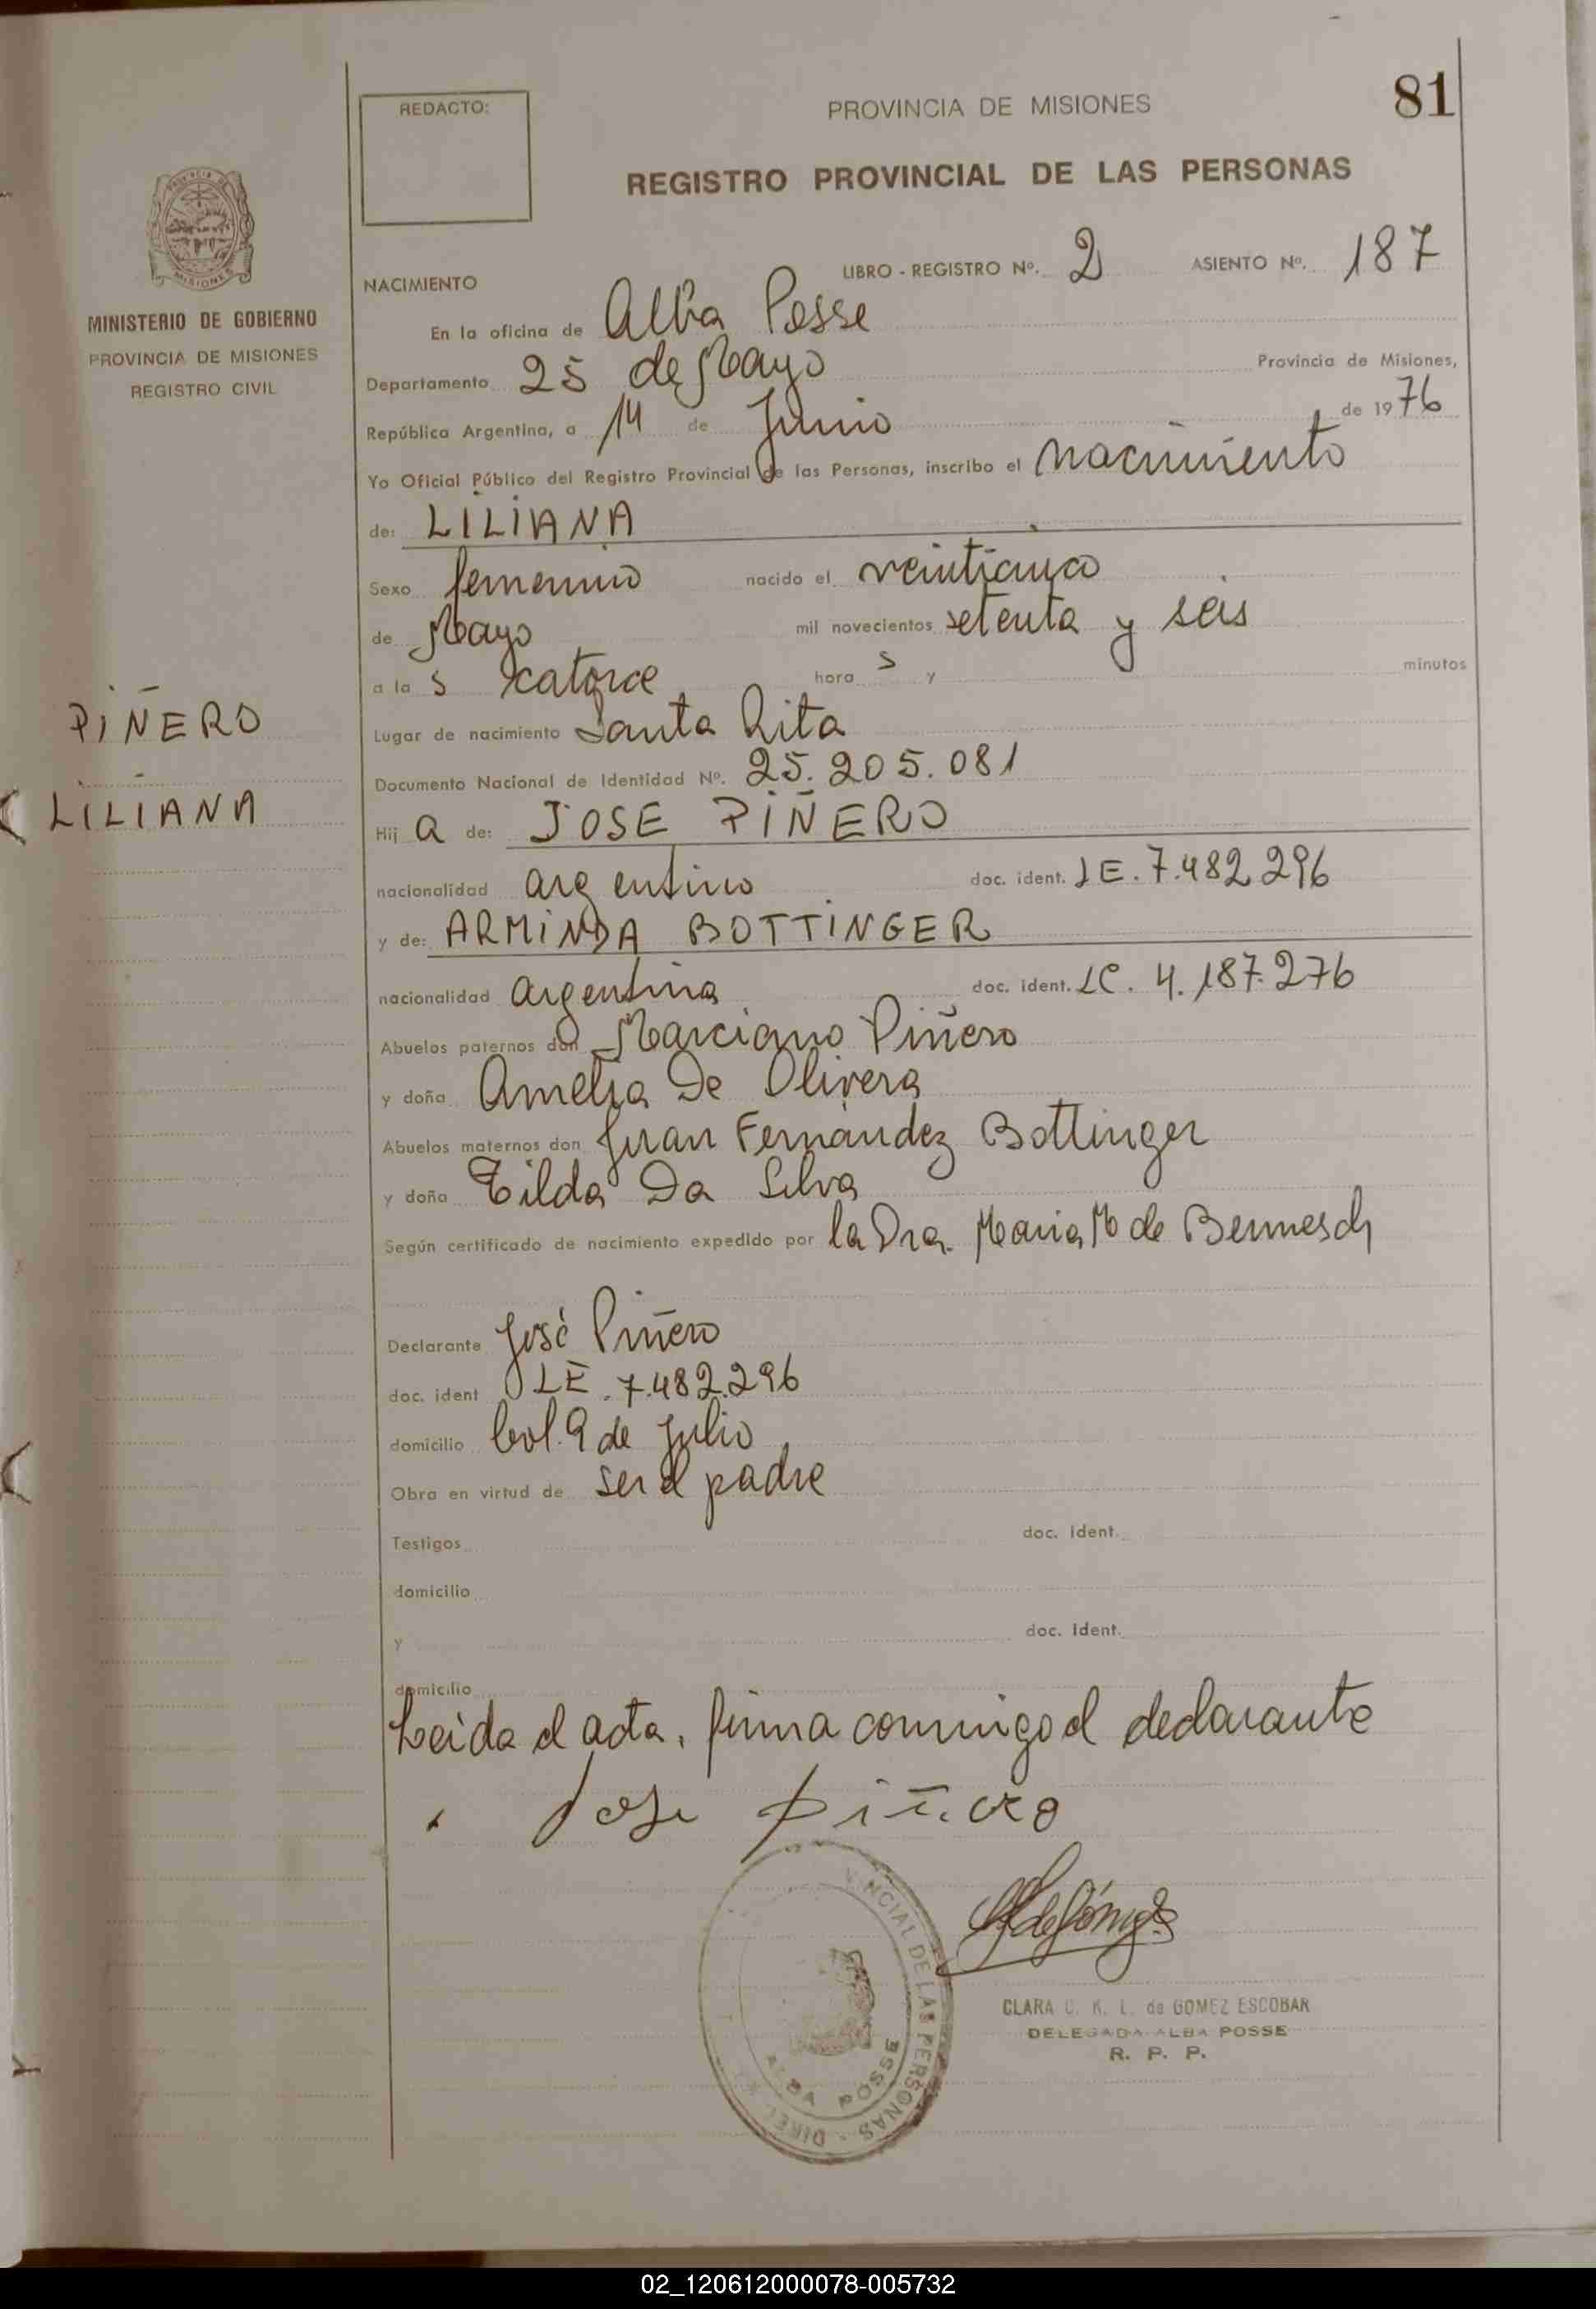 81
REDACTO:
PROVINCIA DE MISIONES
REGISTRO PROVINCIAL DE LAS PERSONAS
MINISTERIO DE GOBIERNO
PROVINCIA DE MISIONES
REGISTRO CIVIL
NACIMIENTO
LIBRO - REGISTRO Nº. 2 ASIENTO Nº. 187
En la oficina de Alba Posse
Departamento 25 de Mayo Provincia de Misiones,
República Argentina, a 14 de Junio de 1976
Yo Oficial Público del Registro Provincial de las Personas, inscribo el nacimiento
de: LILIANA
Sexo femenino nacido el
de Mayo mil novecientos setenta y seis
a la s catorce hora s y minutos
PIÑERO
Lugar de nacimiento Santa Rita
Documento Nacional de Identidad Nº. 25.205.081
LILIANA
Hij a de: JOSE PIÑERO
nacionalidad argentino doc. ident. LE. 7.482.296
y de: ARMINDA BOTTINGER
nacionalidad argentina doc. ident. LC. 4.187.276
Abuelos paternos don Marciano Piñero
y doña Amelia De Olivera
Abuelos maternos don Juan Fernández Bottinger
y doña Tilda Da Silva
Según certificado de nacimiento expedido por la Dra. Maria M de
Declarante José Piñero
doc. ident LE. 7.482.296
domicilio Col. 9 de Julio
Obra en virtud de ser el padre
Testigos doc. ident.
domicilio
y doc. ident.
domicilio
Leida el acta, firma conmigo el declarante
Jose piñero
CLARA C. K. L. de GOMEZ ESCOBAR
DELEGADA ALBA POSSE
R. P. P.
NCIAL DE LAS PERSONAS - DIREC
ALBA POSSE
02_120612000078-005732